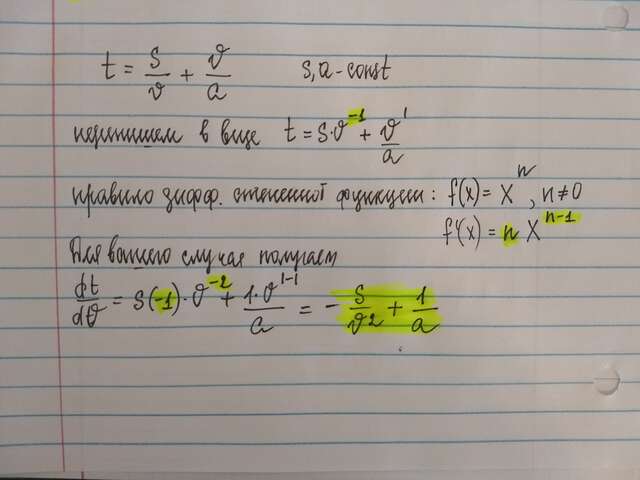 t = s/v + v/a s, a - const
перепишем в виде t = s·v⁻¹ + v¹/a
правило дифф. степенной функции: f(x) = xⁿ, n≠0
f'(x) = n xⁿ⁻¹
Для вашего случая получаем
dt/dv = s(-1)·v⁻² + 1·v¹⁻¹/a = - s/v² + 1/a